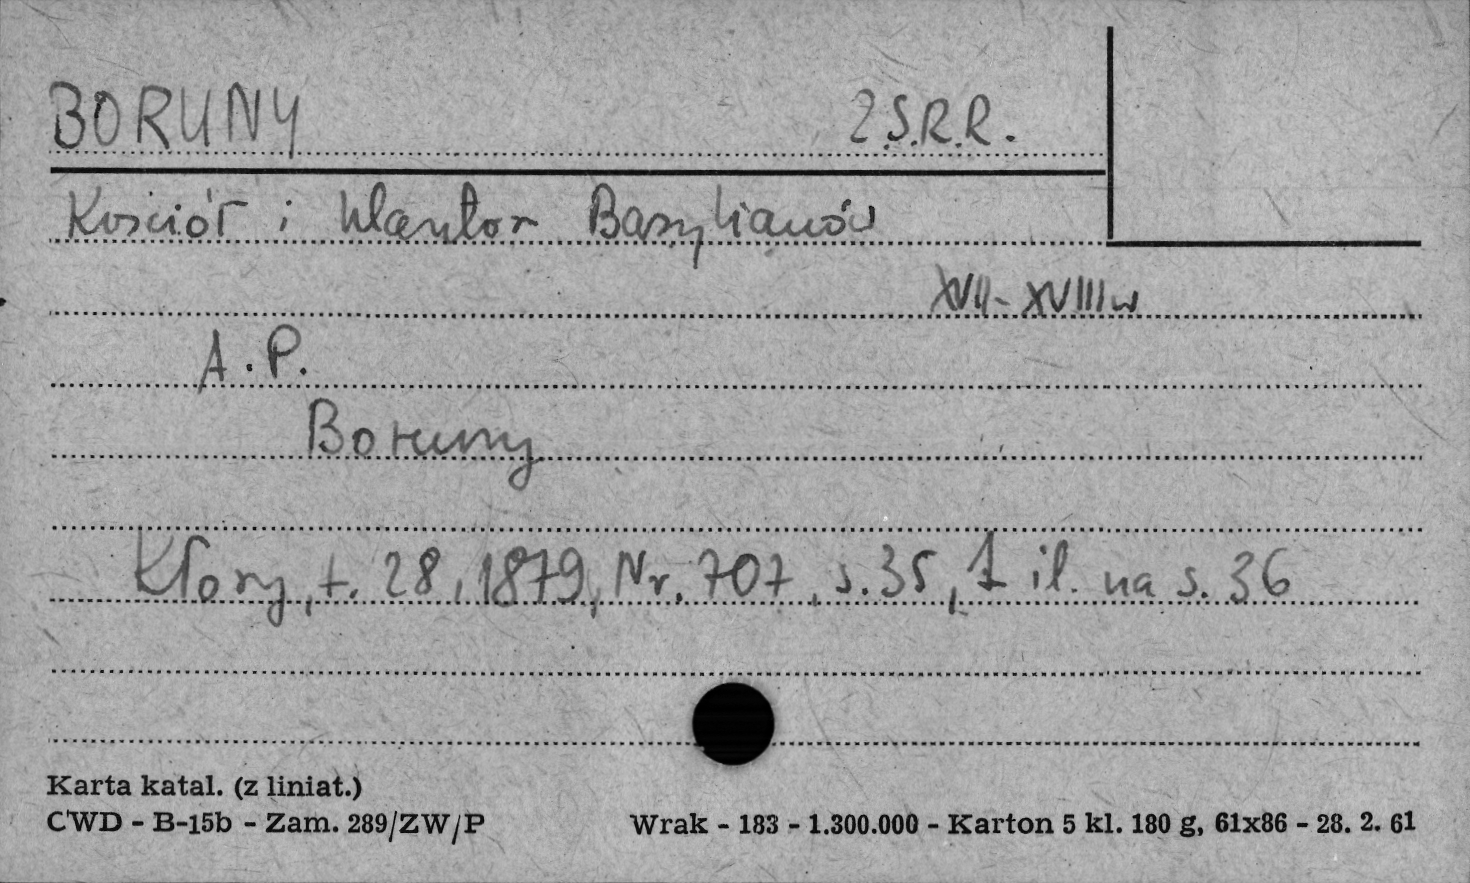 BORUNY ZS.R.R.
Kościół i klasztor Bazylianów
XVII-XVIIIw
A.P.
Boruny
Kłosy, t. 28, 1879, Nr. 707, s. 35, 1 il. na s. 36
Karta katal. (z liniat.)
CWD - B-15b - Zam. 289/ZW/P Wrak - 183 - 1.300.000 - Karton 5 kl. 180 g, 61x86 - 28. 2. 61